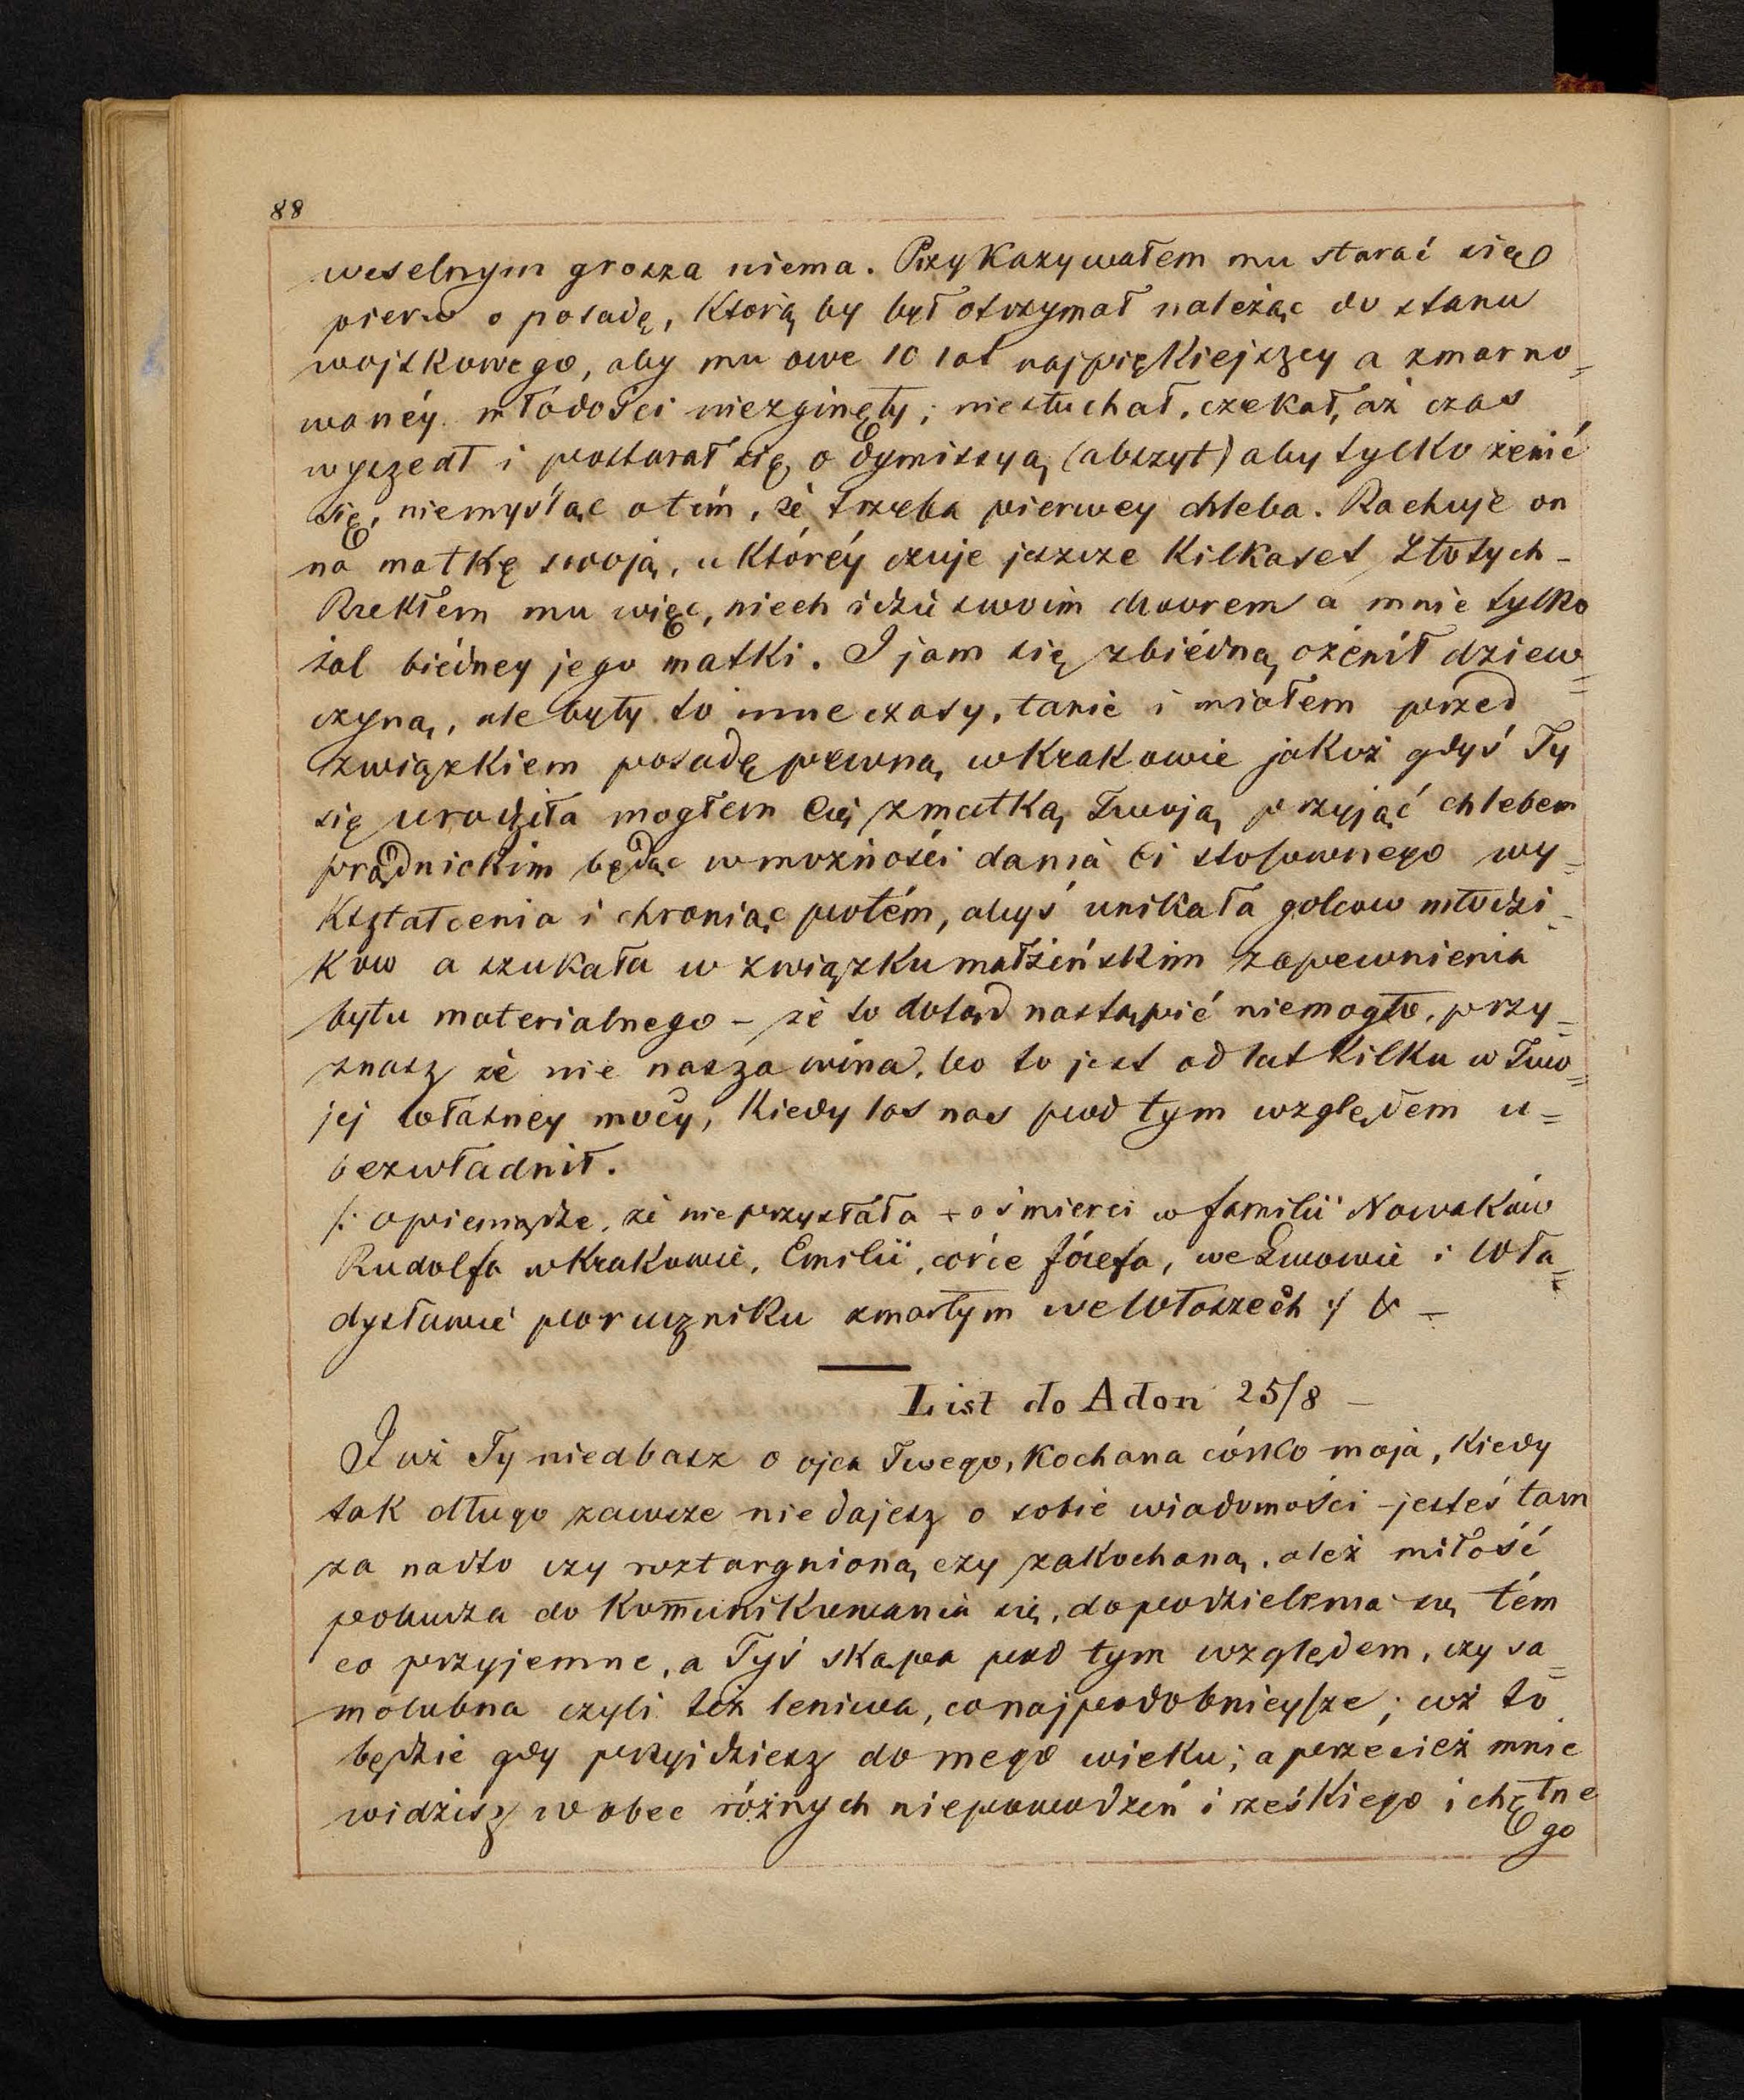 88
weselnym grosza niema. Przykazywałem mu starać się
pierw o posadę, którą by był otrzymał należąc do stanu
wojskowego, aby mu owe 10 lat najpiękiejszey a zmarno=
wanéy młodości niezginęły; niesłuchał, czekał, aż czas
wyszedł i postarał się o dymissyą (abszyt) aby tylko żenić
się, niemyśląc o tém, że trzeba pierwey chleba. Rachuje on
na matkę swoją, u któréy czuje jeszcze kilkaset złotych -
Rzekłem mu więc, niech idzie swoim dworem a mnie tylko
żal biédney jego matki. I jam się zbiédną ożenił dziew=
czyną, ale były to inne czasy, tanie i miałem przed
związkiem posadę pewną w Krakowie jakoż gdyś Ty
się urodziła mogłem Cię z matką Twoją przyjąć chlebem
prądnickim będąc w możności dania Ci stosownego wy=
kształcenia i chroniąc potém, abyś unikała golcow młodzi-
kow a szukała w związku małżeńskim zapewnienia
bytu materialnego - że to dotąd nastąpić niemogło, przy=
znasz że nie nasza wina, bo to jest od lat kilku w Two=
jej własney mocy, kiedy los nas pod tym względem u=
bezwładnił.
/: o pieniądze, że nie przysłała + o śmierci w familii Nowaków
Rudolfa w Krakowie, Emilii, córce Józefa, we Lwowie i Wła=
dysławie poruczniku zmarłym we Włoszech :/ & -
List do Adon 25/8 -
Już Ty niedbasz o ojca Twego, kochana córko moja, kiedy
tak długo zawsze nie dajesz o sobie wiadomości - jesteś tam
za nadto czy roztargnioną czy zakochaną, ależ miłość
pobudza do komunikowania się, do podzielenia się tém
co przyjemne, a Tyś skąpa pod tym względem, czy sa=
molubna czyli też leniwa, co najpodobnieysze; cóż to
będzie gdy przyjdziesz do mego wieku; a przecież mnie
widzisz w obec różnych niepowodzeń i rześkiego i chętne
go